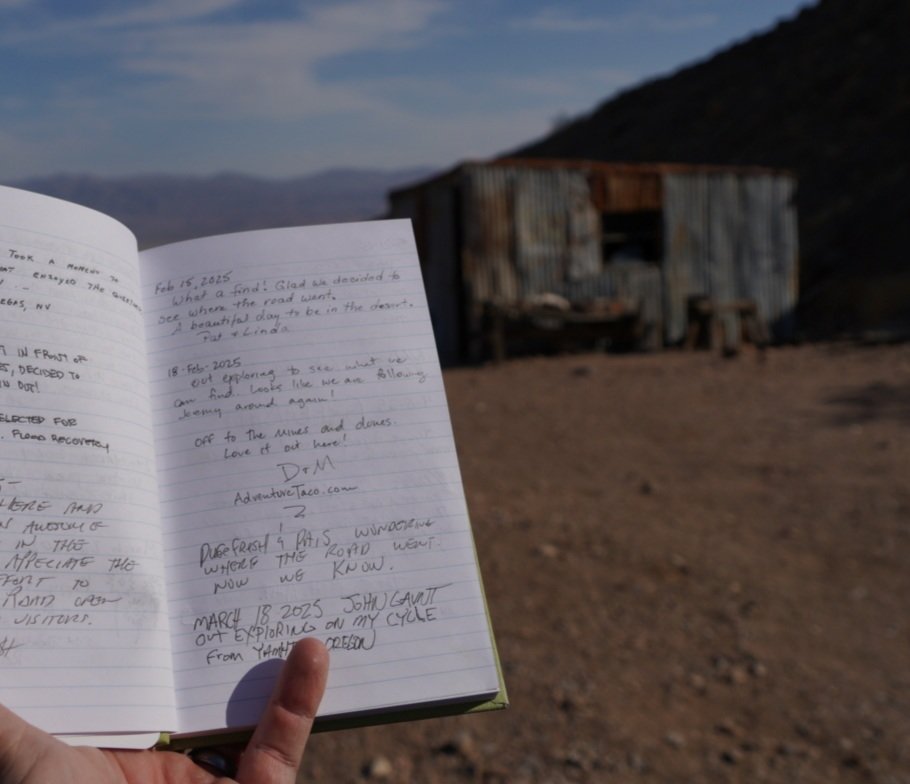 TOOK A MOMENT TO
ENJOYED THE
VEGAS, NV
IN FRONT OF
DECIDED TO
SELECTED FOR
FLOOD RECOVERY
HERE AND
AWESOME
IN THE
APPECIATE THE
TO
ROAD OPEN
VISITORS.
Feb 15, 2025
What a find! Glad we decided to
see where the road went.
A beautiful day to be in the desert.
Pat & Linda
18-Feb-2025
Out exploring to see what we
can find. Looks like we are following
around again!
Off to the mines and dunes.
Love it out here!
D+M
AdventureTaco.com
& PALS WONDERING
WHERE THE ROAD WENT.
NOW WE KNOW.
MARCH 18 2025 JOHN GAUNT
OUT EXPLORING ON MY CYCLE
From OREGON